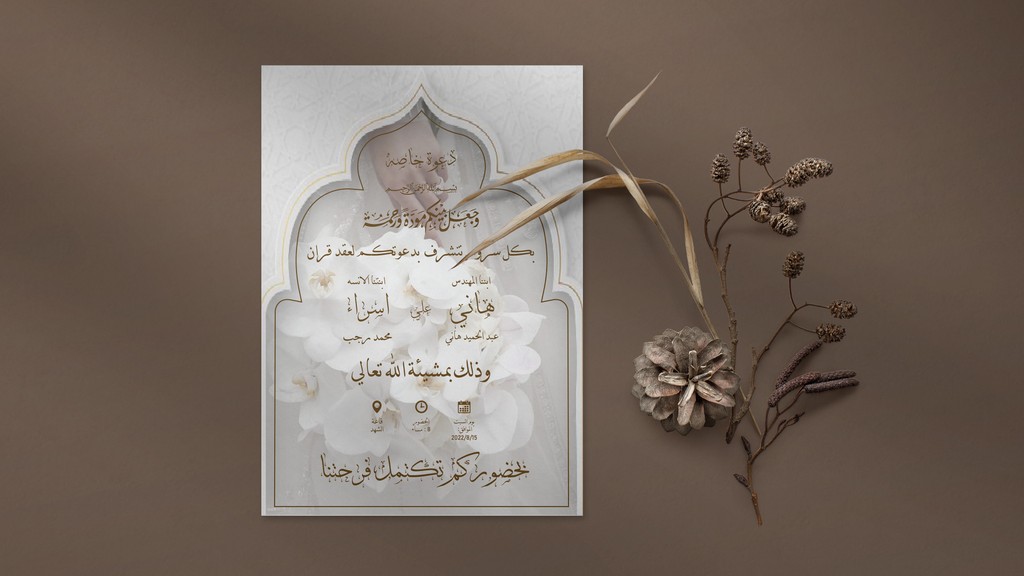 دعوة خاصة
بسم الله الرحمن الرحيم
وجعل بينكم مودة ورحمة
بكل سرور نتشرف بدعوتكم لعقد قران
ابننا المهندس ابنتنا الانسه
هاني علي اسراء
عبد الحميد هاني محمد رجب
وذلك بمشيئة الله تعالي
يوم السبت الحضور قاعة
الموافق: 8 مساء
2022/8/15
بحضوركم تكتمل فرحتنا